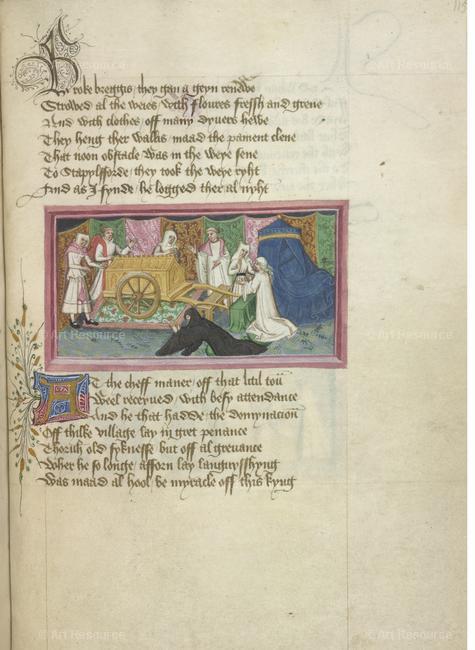 115
Broke breggis they gan ageyn renewe
Strowed al the weies with floures fressh and grene
And with clothes off many dyuers hewe
They heng ther wallis maad the pament clene
That noon obstacle was in the weye sene
To Stapylforde they took the weye ryht
And as I fynde he logged ther al nyht
At the cheff maner off that litil toun
Weel receyued with besy attendance
And he that hadde the domynacioun
Off thilke village lay in gret penance
Thoruh old syknesse but off al grevance
Wher he so longe afforn lay languysshyng
Was maad al hool be myracle off this kyng
© Art Resource
© Art Resource
© Art Resource
© Art Resource
© Art Resource
© Art Resource